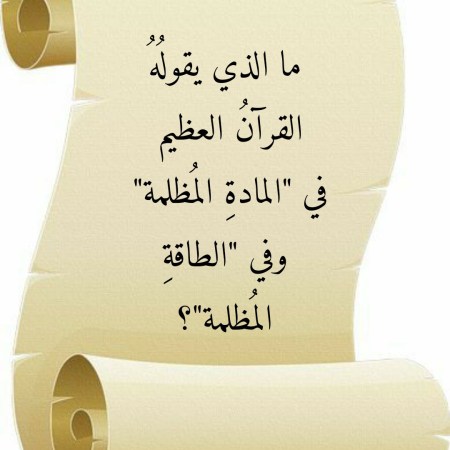 ما الذي يقولُهُ
القرآنُ العظيم
في "المادةِ المُظلمة"
وفي "الطاقةِ
المُظلمة"؟